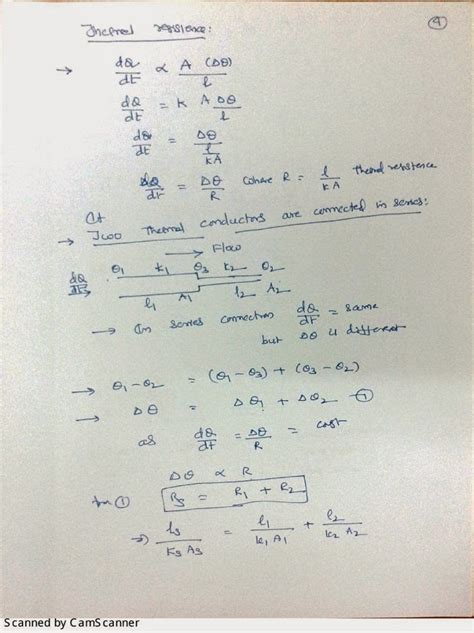 4
Thermal resistance:
→ dQ/dt ∝ A (Δθ)/l
dQ/dt = K A Δθ/l
dQ/dt = Δθ/(l/KA)
dQ/dt = Δθ/R where R = l/KA thermal resistance
→ If Two thermal conductors are connected in series:
→ Flow
dQ/dt θ1 k1 θ3 k2 θ2
l1 A1 l2 A2
→ In series connection dQ/dt = same
but Δθ is different
→ θ1 - θ2 = (θ1 - θ3) + (θ3 - θ2)
→ Δθ = Δθ1 + Δθ2 - ①
as dQ/dt = Δθ/R = cost
Δθ ∝ R
from ① Rs = R1 + R2
⇒ ls/(Ks As) = l1/(k1 A1) + l2/(k2 A2)
Scanned by CamScanner